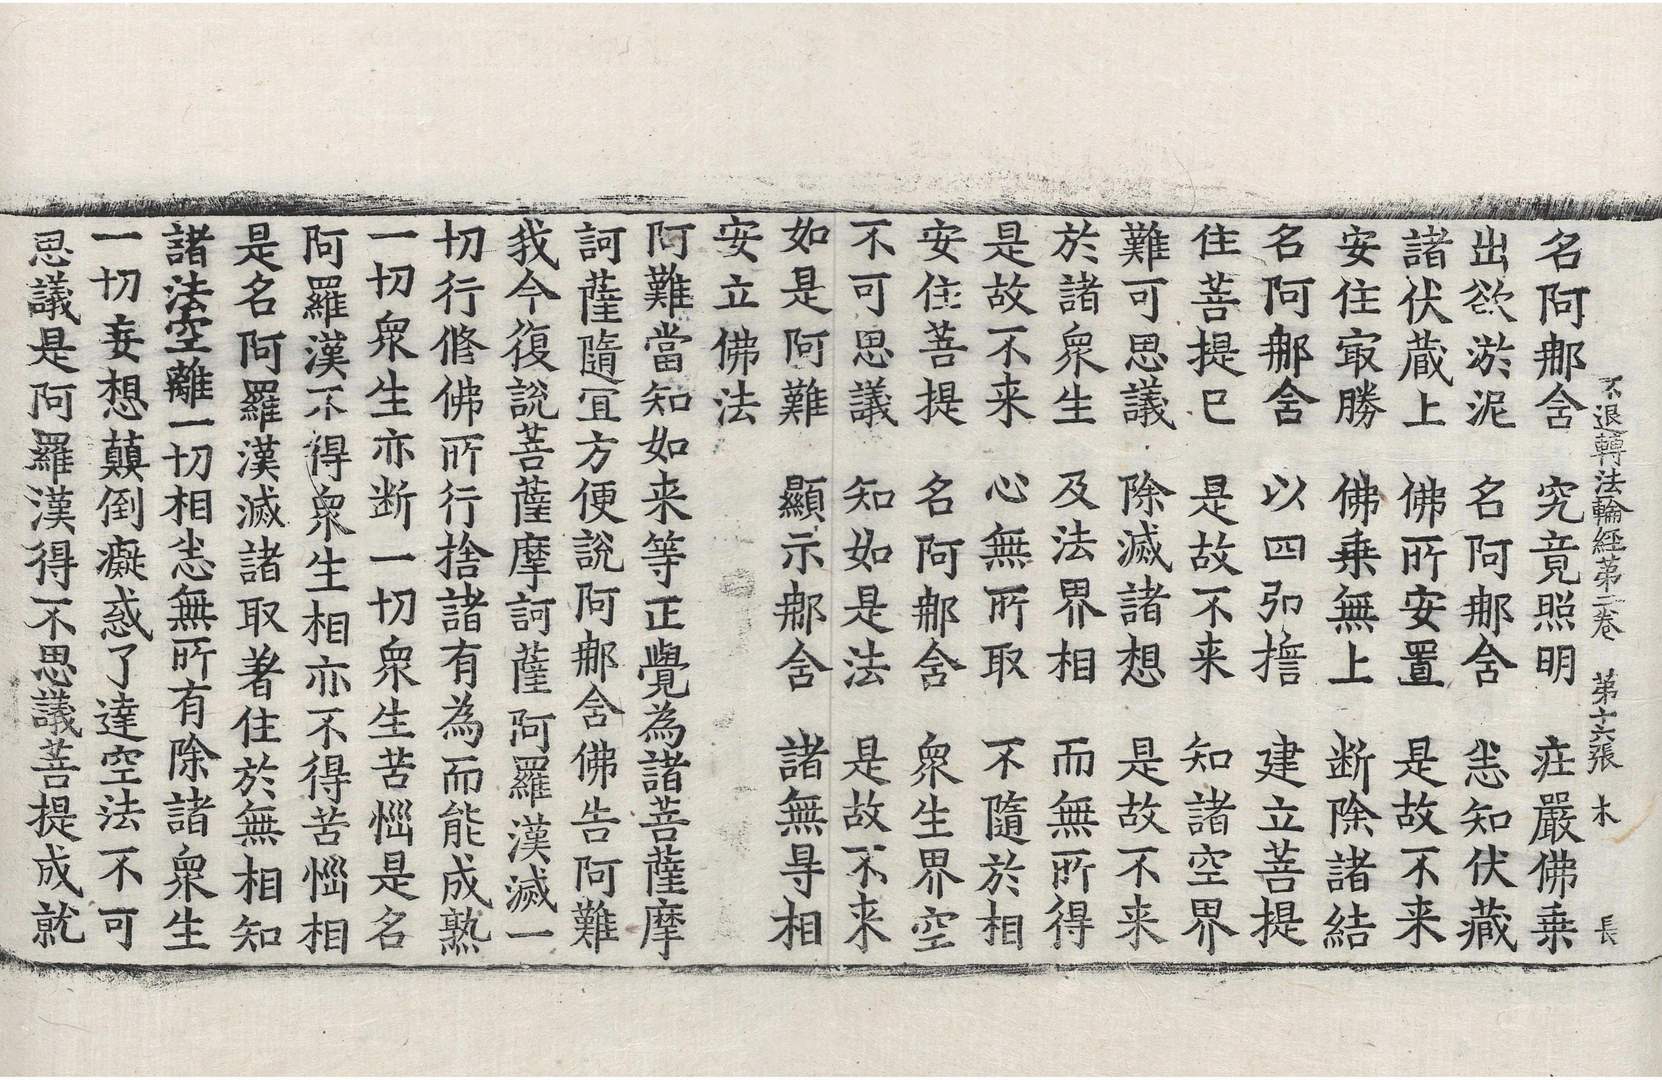 不退轉法輪經第二卷 第十六張 木 長
名阿那舍 究竟照明 疰嚴佛乗
出欲淤泥 名阿那舍 悉知伏藏
諸伏蔵上 佛所安置 是故不来
安住㝡勝 佛乗無上 断除諸結
名阿那舍 以四弘擔 建立菩提
住菩提已 是故不来 知諸空界
難可思議 除滅諸想 是故不来
於諸衆生 及法界相 而無所得
是故不来 心無所取 不隨於相
安住菩提 名阿那舍 衆生界空
不可思議 知如是法 是故不来
如是阿難 顯示那舍 諸無㝵相
安立佛法
阿難當知如来等正覺為諸菩薩摩
訶薩隨冝方便說阿那舍佛告阿難
我今復說菩薩摩訶薩阿羅漢滅一
切行修佛所行捨諸有為而能成熟
一切衆生亦断一切衆生苦惱是名
阿羅漢不得衆生相亦不得苦惱相
是名阿羅漢滅諸取著住於無相知
諸法空離一切相悉無所有除諸衆生
一切妄想顛倒癡惑了達空法不可
思議是阿羅漢得不思議菩提成就